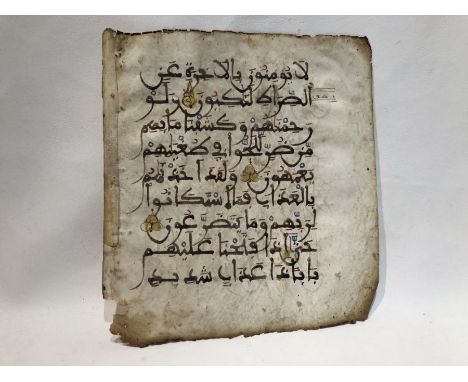 لا يومنون بالاخرة عن
الصراط لنكبون ولو
رحمنهم وكشفنا ما بهم
من ضر للجوا في طغينهم
يعمهون ولقد اخذنهم
بالعذاب فما استكانوا
لربهم وما يتضرعون
حتى اذا فتحنا عليهم
بابا ذا عذاب شديد